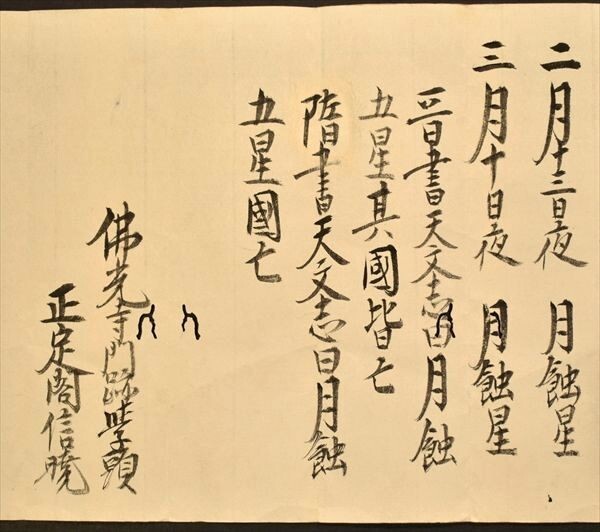 二月十三日夜　月蝕星
三月十日夜　月蝕星
晋書天文志曰月蝕
五星其國皆亡
隋書天文志曰月蝕
五星國亡
佛光寺門跡学頭
正定閣信暁